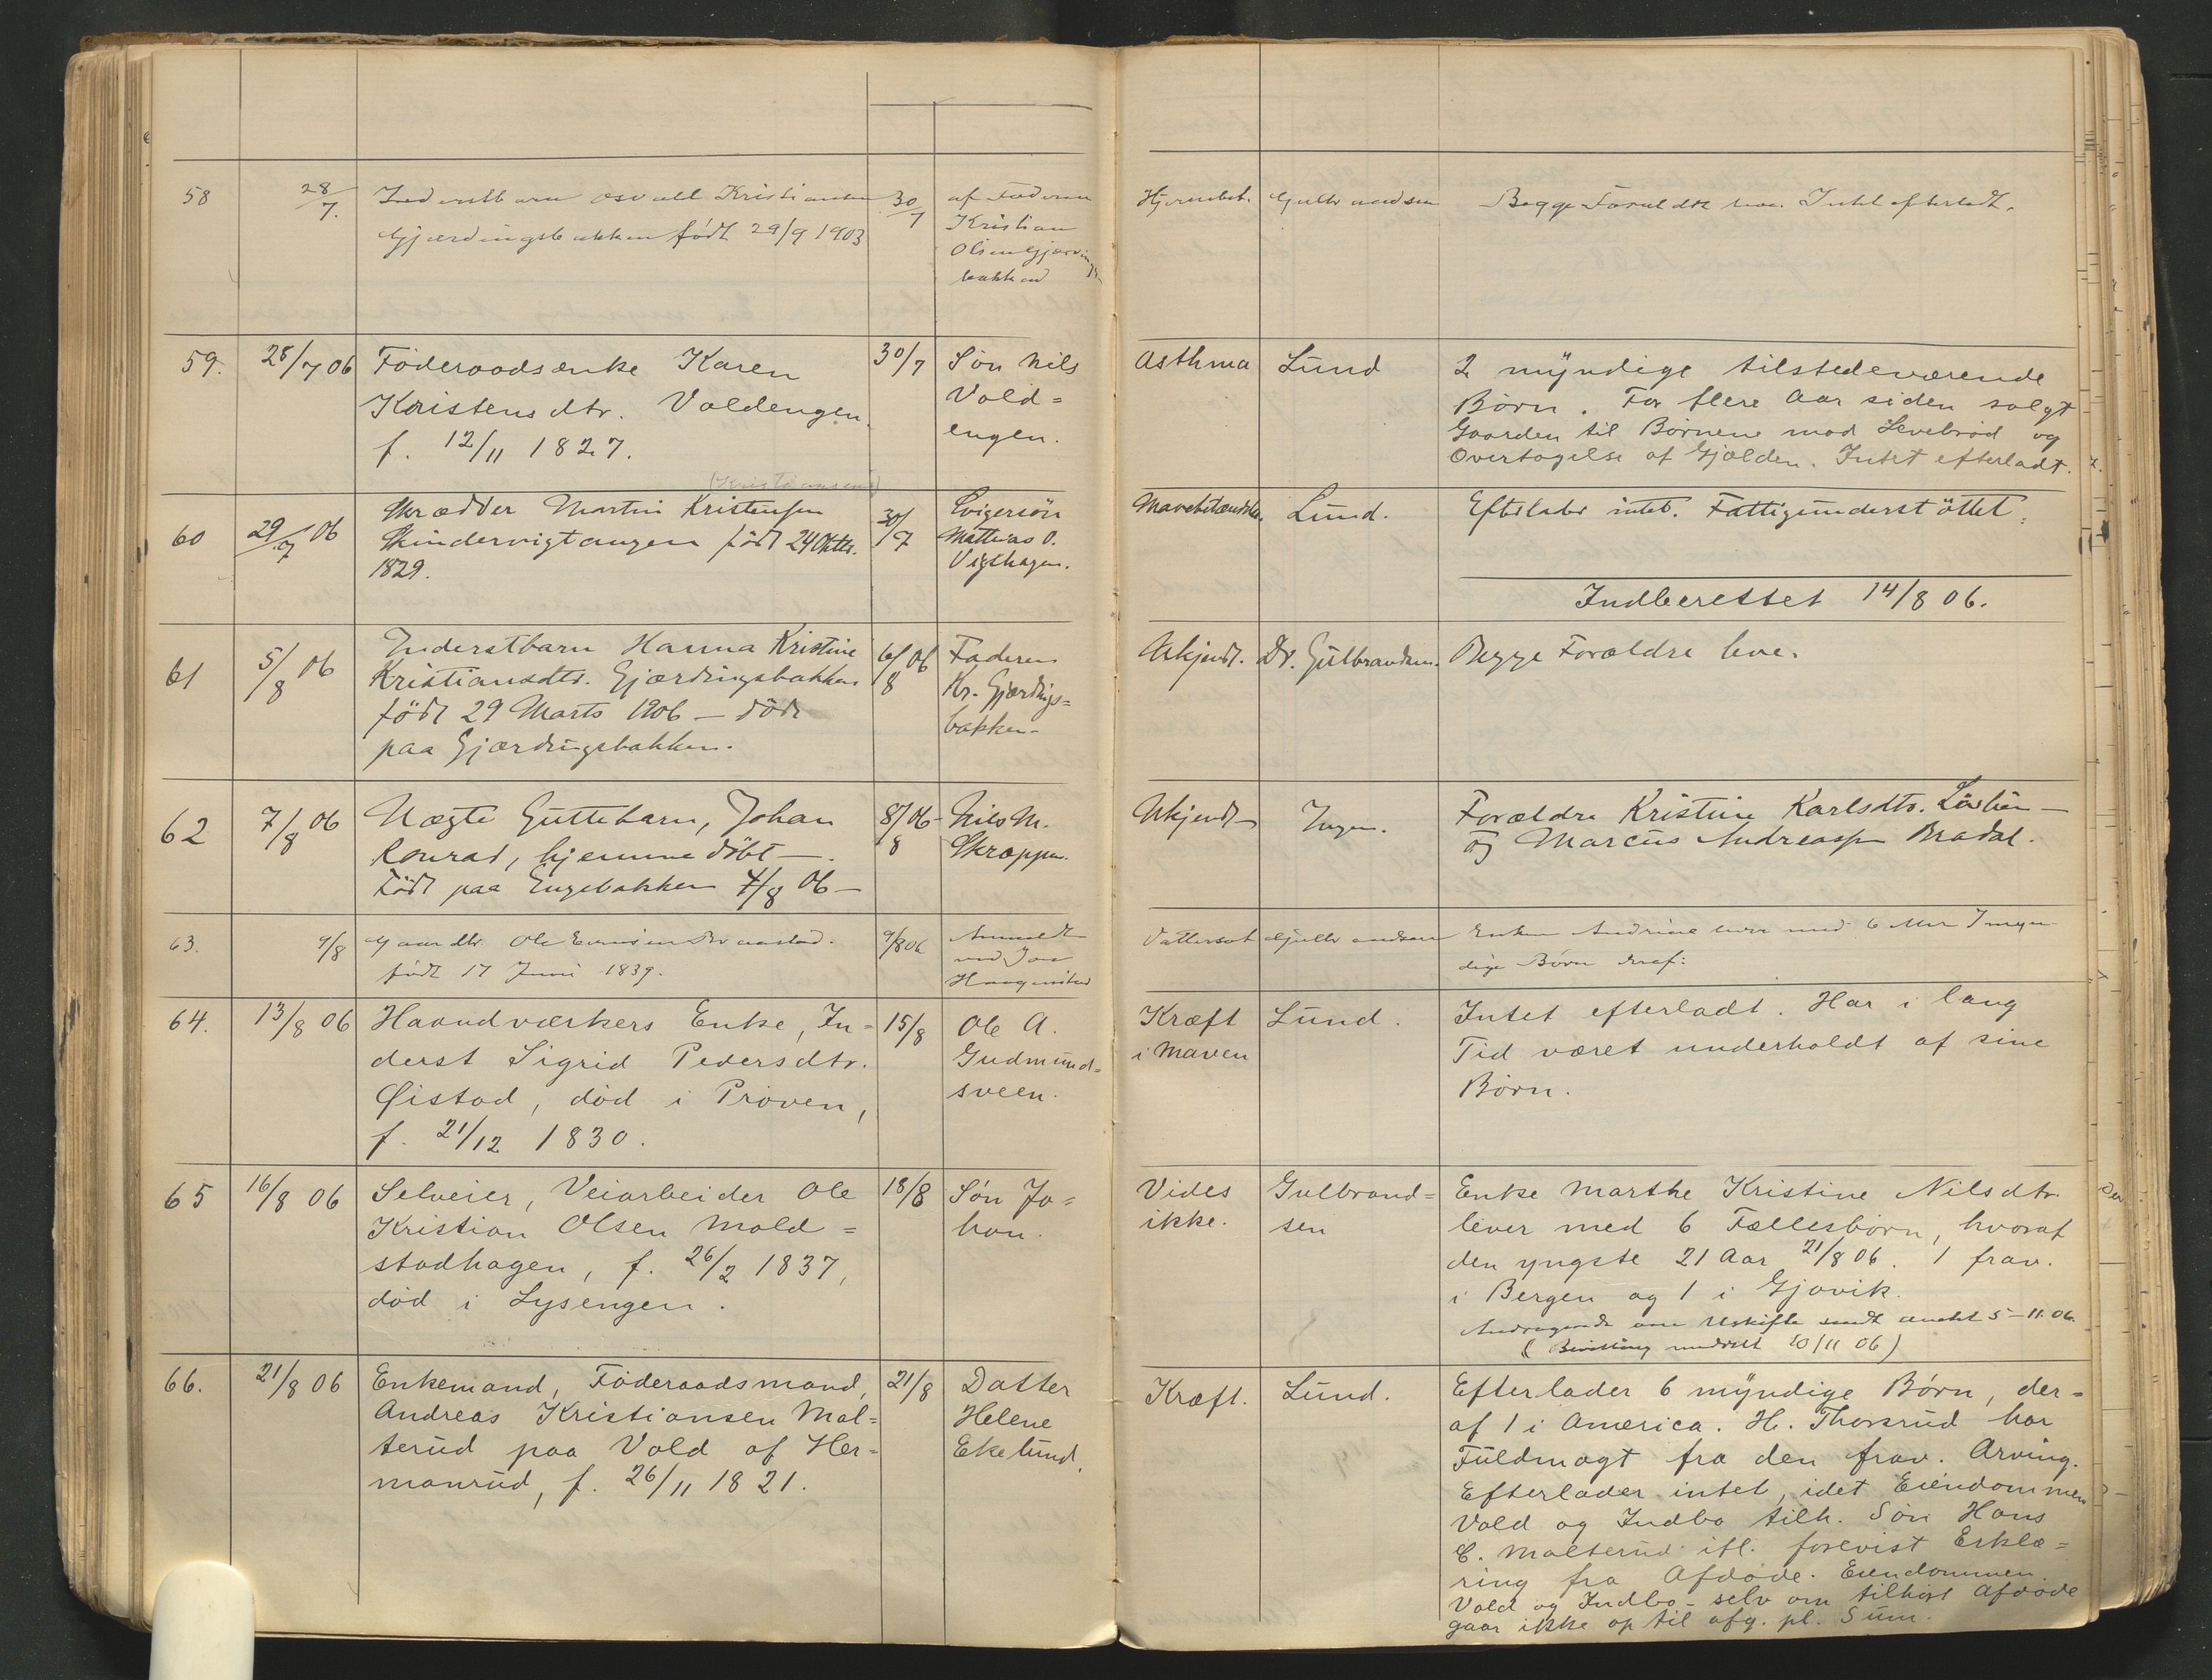 58
28/7.
Inderstbarn Osvall Kristiansen
Gjærdingsbakken født 29/9 1903
30/7
af Faderen
Kristian
Olsen Gjærdings-
bakken
Hjernebet.
Gulbrandsen
Begge Foreldre leve. Intet efterladt.
59.
28/7 06
Föderaadsenke Karen
Kristensdtr. Voldengen
f. 12/11 1827.
30/7
Sön Nils
Vold=
engen.
Asthma
Lund
2 myndige tilstedeværende
Börn. For flere Aar siden solgt
Gaarden til Börnene mod Levebröd og
Overtagelse af Gjælden. Intet efterladt.
60
29/7 06
(Kristiansen)
Skrædder Martin Kristensen
født 24 Oktbr.
1829.
30/7
Svigersön
Mathias O.
Vigshagen.
Mavebetændelse.
Lund.
Efterlader intet. Fattigunderstöttet.
Indberettet 14/8 06.
61
5/8 06
Inderstbarn Hanna Kristine
Kristiansdtr. Gjærdingsbakken
född 29 Marts 1906 — död
paa Gjærdingsbakken.
6/8 06
Faderen
Kr. Gjærdings=
bakken.
Ukjendt.
Dr. Gulbrandsen.
Begge Forældre leve.
62
7/8 06
Uægte Guttebarn, Johan
Konrad, hjemmedöbt —.
Född paa Engebakken 4/8 06 —
8/8 06
Nils M.
Skrappen.
Ukjendt
Ingen.
Forældre Kristine Karlsdtr. —
og Marcus Andreassen Bradal.
63.
9/8
Gaardbr. Ole
född 17 Juni 1839.
9/8 06
Anmeldt
ved
Vattersot
Gulbrandsen
Enken Andrine lever med 6
dige Börn
64.
13/8 06
Haandværkers Enke, In=
derst Sigrid Pedersdtr.
Øistad, död i Pröven,
f. 21/12 1830.
15/8
Ole A.
Gudmund=
sveen.
Kræft
i Maven
Lund.
Intet efterladt. Har i lang
Tid været underholdt af sine
Börn.
65
16/8 06
Selveier, Veiarbeider Ole
Kristian Olsen Mold=
stadhagen, f. 26/2 1837,
död i Lysengen.
18/8
Sön Jo=
han.
Vides
ikke.
Gulbrand=
sen
Enke Marthe Kristine Nilsdtr.
lever med 6 Fællesbörn, hvoraf
den yngste 21 Aar 21/8 06. 1 frav.
i Bergen og 1 i Gjövik.
Andragende om Uskifte sendt amtet 5-11.06.
(Bevilling meddelt 10/11 06)
66.
21/8 06
Enkemand, Föderaadsmand,
Andreas Kristiansen Mal=
terud paa Vold af Her=
manrud, f. 26/11 1821.
21/8
Datter
Helene
Ekelund.
Kræft.
Lund.
Efterlader 6 myndige Börn, der=
af 1 i America. H. Thorsrud har
Fuldmagt fra den frav. Arving.
Efterlader intet, idet Eiendommen
Vold og Indbo tilh. Sön Hans
C. Malterud ifl. forevist Erklæ=
ring fra Afdöde. Eiendommen
Vold og Indbo - selv om tilhört Afdöde
gaar ikke op til afg. pl. Sum.